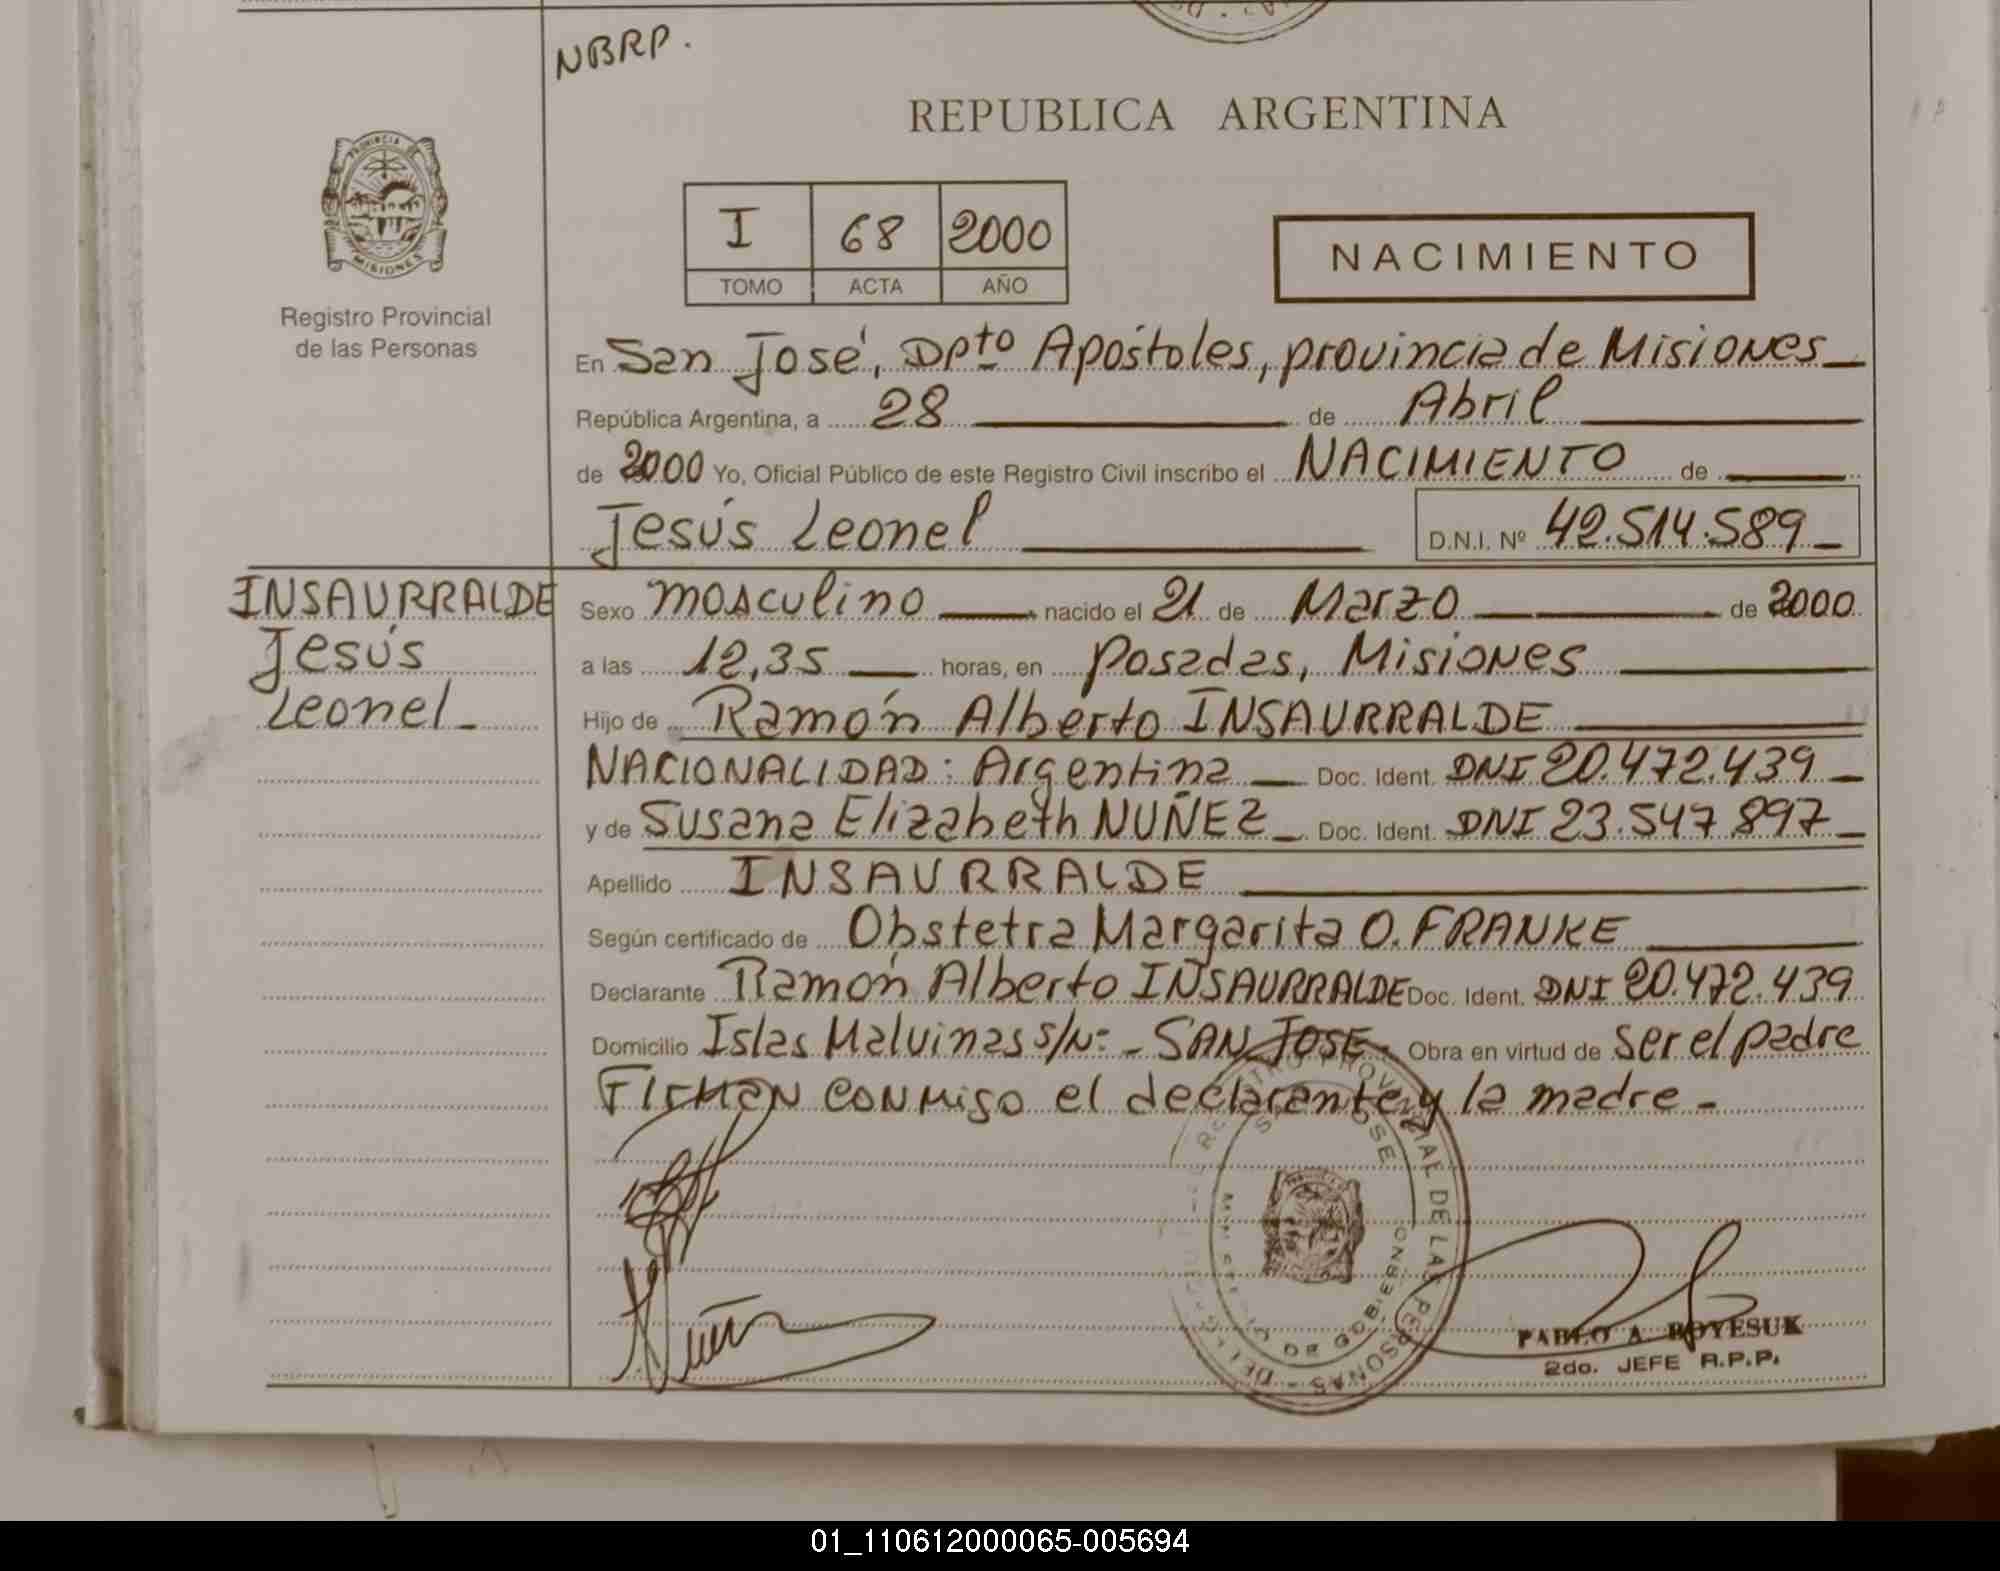 NBRP.
REPUBLICA ARGENTINA
PROVINCIA DE
MISIONES
Registro Provincial
de las Personas
I 68 2000
TOMO ACTA AÑO
NACIMIENTO
En San José, Dpto Apóstoles, provincia de Misiones
República Argentina, a 28 de Abril
de 2000 Yo, Oficial Público de este Registro Civil inscribo el NACIMIENTO de
Jesús Leonel D.N.I. Nº 42.514.589
INSAURRALDE
Jesús
Leonel
Sexo masculino nacido el 21 de Marzo de 2000
a las 12,35 horas, en Posadas, Misiones
Hijo de Ramón Alberto INSAURRALDE
NACIONALIDAD: Argentina Doc. Ident. DNI 20.472.439
y de Susana Elizabeth NUÑEZ Doc. Ident. DNI 23.547.897
Apellido INSAURRALDE
Según certificado de Obstetra Margarita O. FRANKE
Declarante Ramón Alberto INSAURRALDE Doc. Ident. DNI 20.472.439
Domicilio Islas Malvinas s/Nº - SAN JOSE - Obra en virtud de ser el padre
Firman conmigo el declarante y la madre -
REGISTRO PROVINCIAL DE LAS PERSONAS
SAN JOSE
DE GOBIERNO
PABLO A. BOYESUK
2do. JEFE R.P.P.
01_110612000065-005694